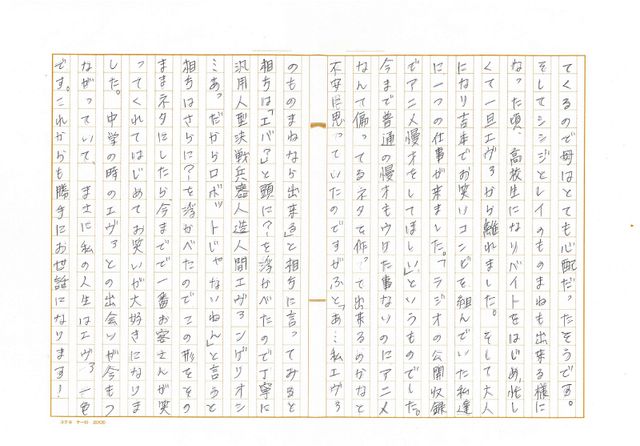 てくるので母はとても心配だったそうです。
そしてシンジとレイのものまねも出来る様に
なった頃、高校生になりバイトをはじめ、忙し
くて一旦エヴァから離れました。そして大人
になり吉本でお笑いコンビを組んでいた私達
に一つの仕事が来ました。「ラジオの公開収録
でアニメ漫才をしてほしい」というものでした。
今まで普通の漫才もウケた事ないのにアニメ
なんて偏ってるネタを作って出来るのかなと
不安に思っていたのですがふと「あ…私エヴァ
のものまねなら出来る」と相方に言ってみると
相方は「エバ?」と頭に?を浮かべたので丁寧に
汎用人型決戦兵器人造人間エヴァンゲリオン
…あっだからロボットじゃないねん」と言うと
相方はさらに?を浮かべたのでこの形をその
ままネタにしたら、今までで一番お客さんが笑
ってくれてはじめてお笑いが大好きになりま
した。中学の時のエヴァとの出会いが今もつ
ながっていて、まさに私の人生はエヴァ一色
です。これからも勝手にお世話になります!
コクヨ ケ-10 20×20